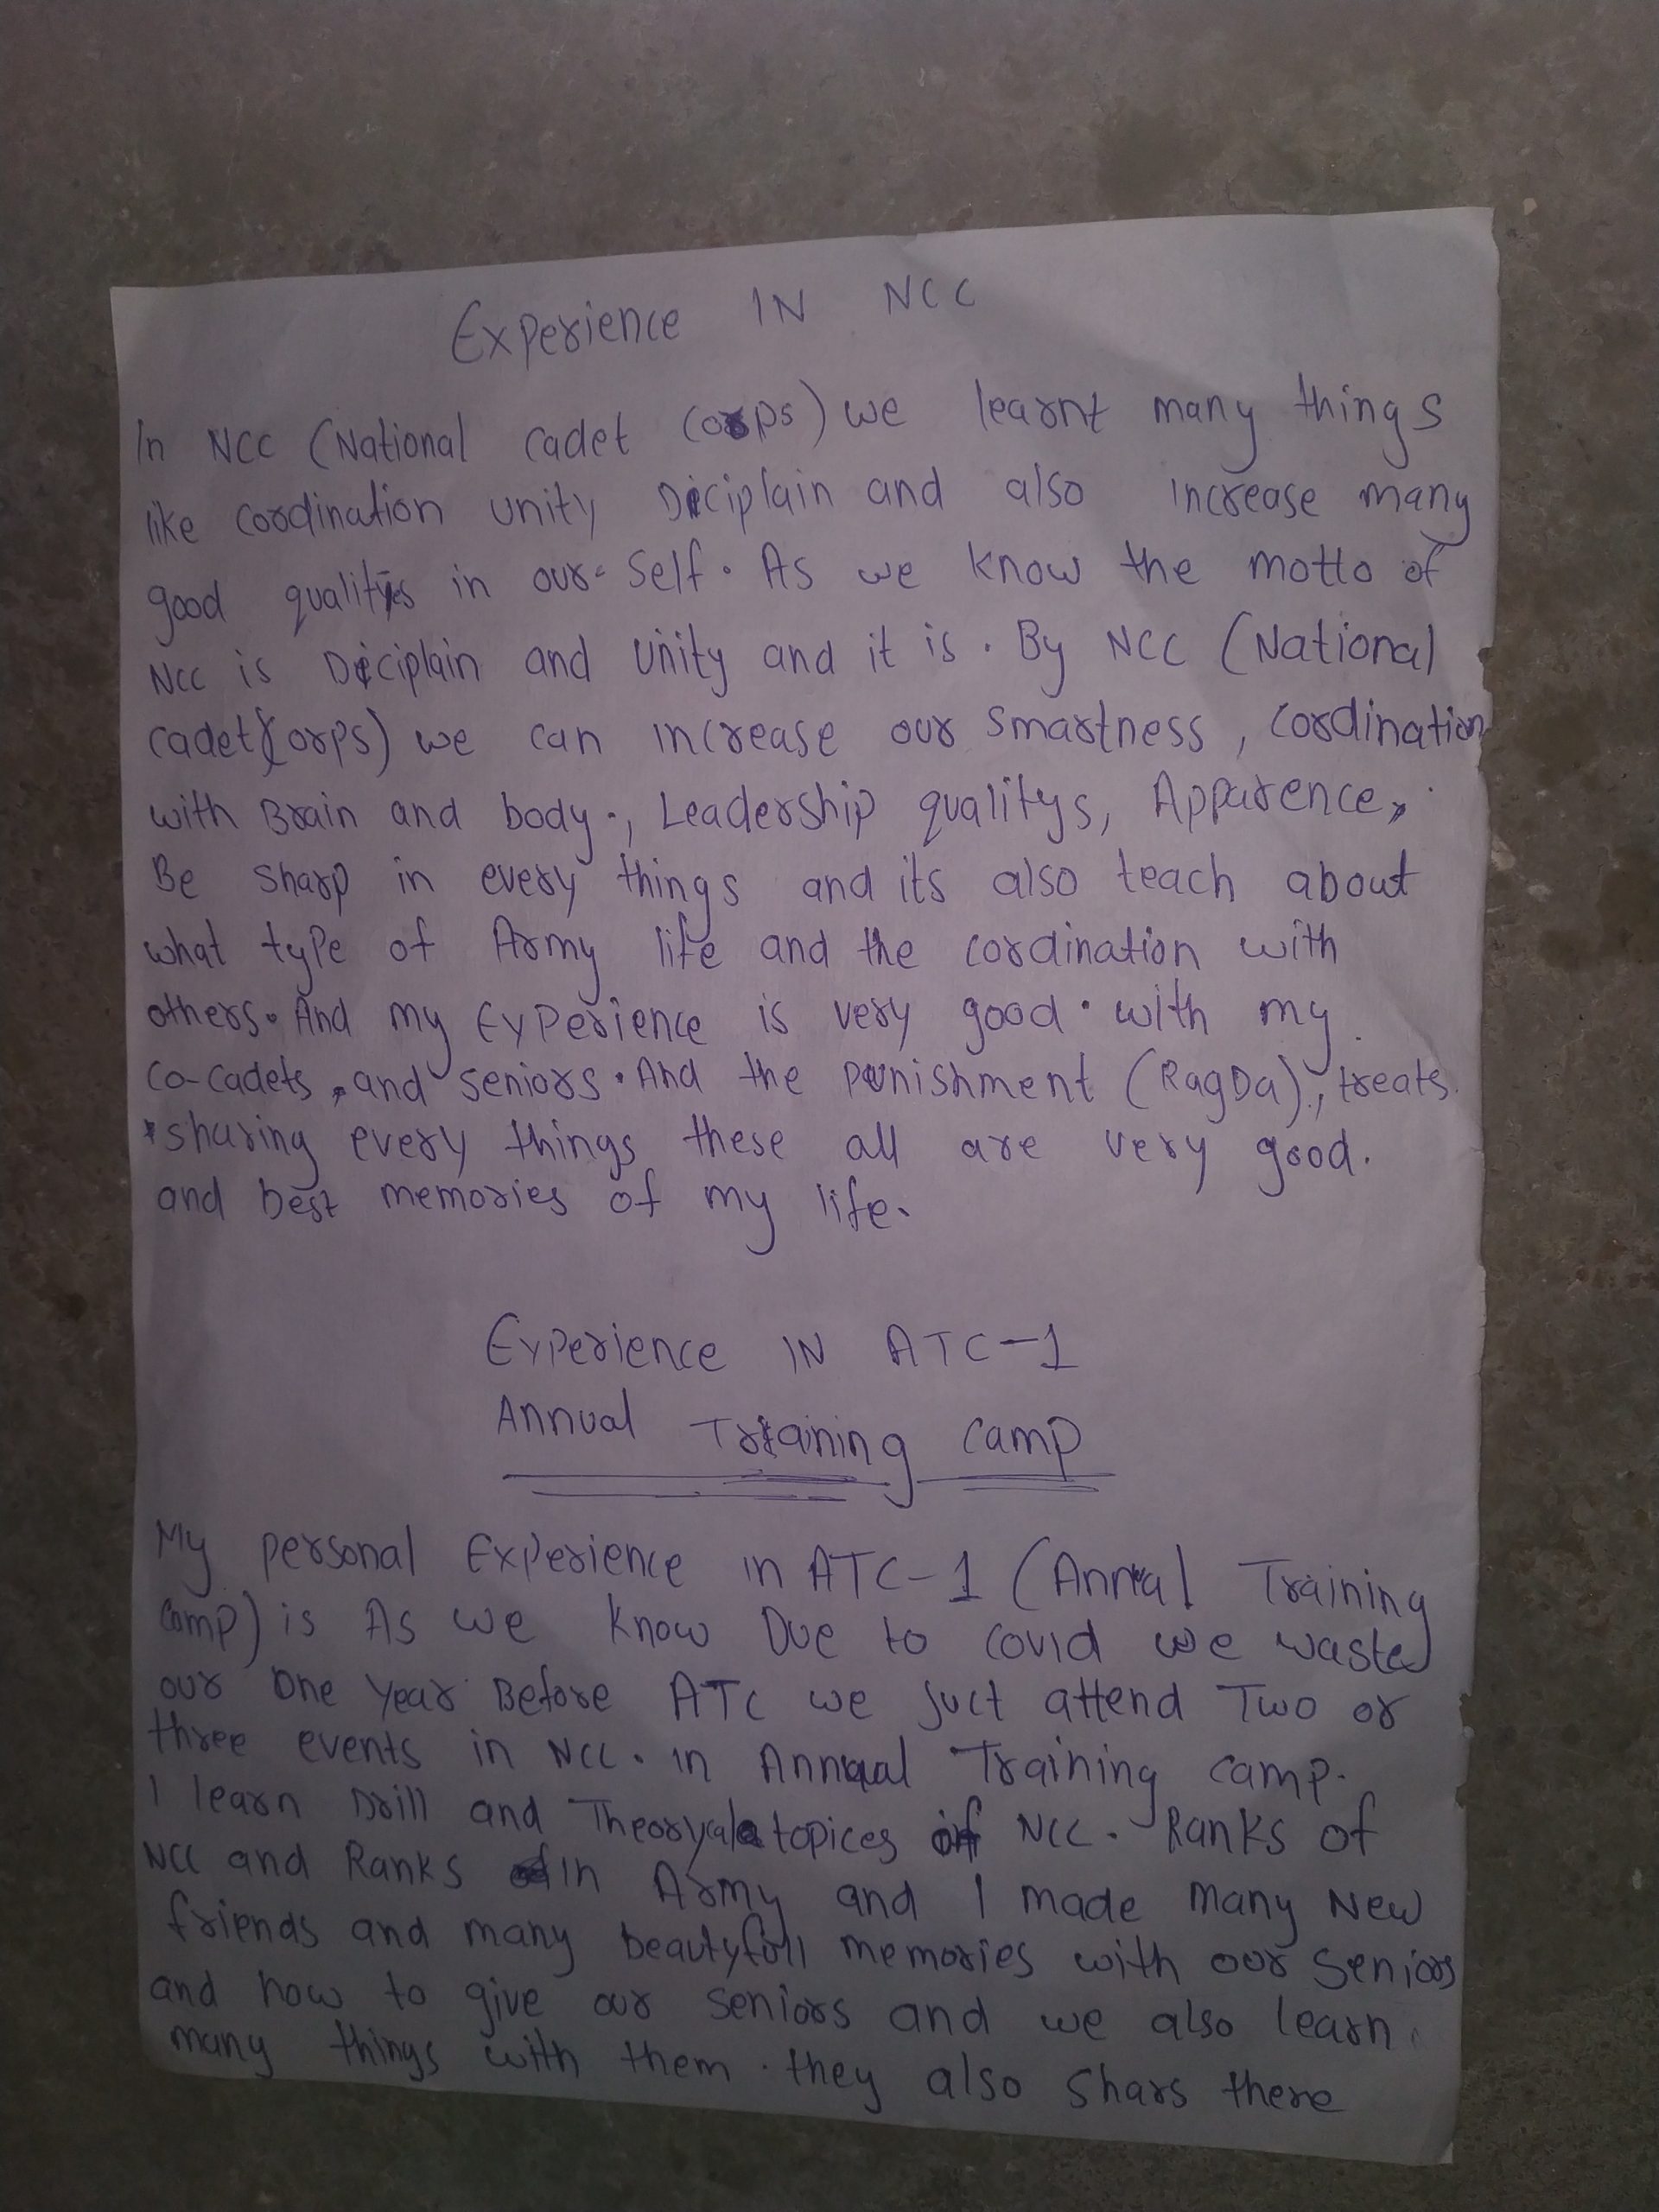 Experience IN NCC
In NCC (National Cadet Corps) we learnt many things
like Cordination unity Diciplain and also increase many
good qualityes in our-self. As we know the motto of
NCC is Diciplain and Unity and it is. By NCC (National
Cadet Corps) we can increase our smartness, Cordination
with Brain and body., Leadership qualitys, Apparence,
Be sharp in every things and its also teach about
what type of Army life and the cordination with
others. And my Experience is very good. with my
co-cadets, and seniors. And the punishment (RagDa), treats
sharing every things these all are very good.
and best memories of my life.
Experience IN ATC-1
Annual Training Camp
My personal Experience in ATC-1 (Annual Training
Camp) is As we know Due to covid we wasted
our One Year Before ATC we juct attend Two or
three events in NCC. in Annual Training Camp.
I learn Drill and Theorycal topices of NCC. Ranks of
NCC and Ranks in Army and I made many New
friends and many beautyfull memories with our Seniors
and how to give our seniors and we also learn
many things with them. they also shars there